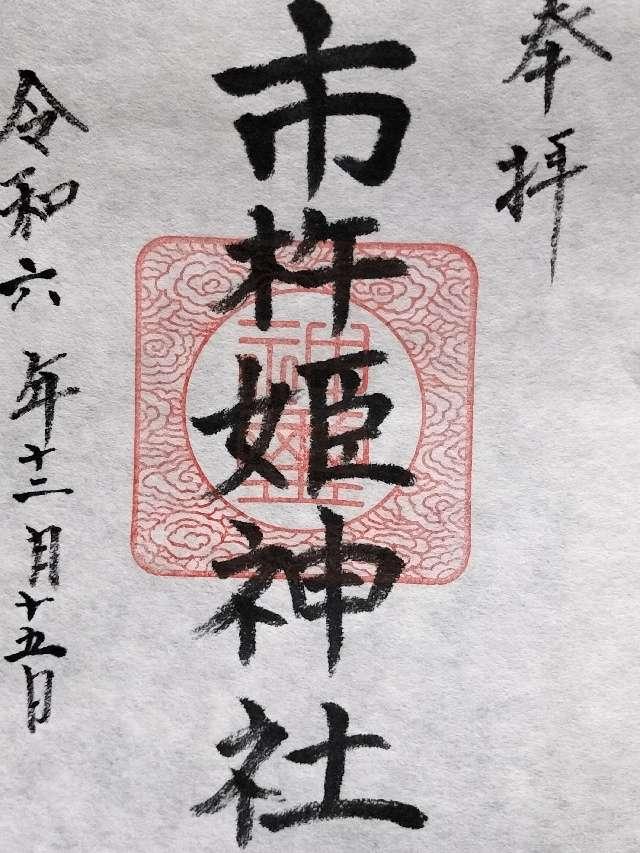 奉拝
市杵姫神社
令和六年十二月十五日